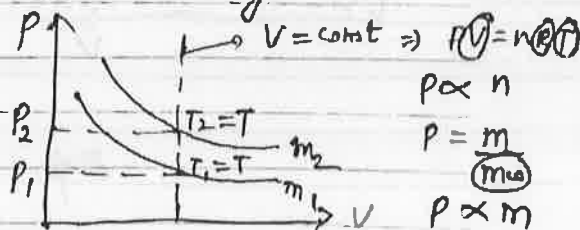 P
V = const ⇒ PV = nRT
P ∝ n
P₂ T₂ = T m₂
P = m
P₁ T₁ = T m₁
V
P ∝ m